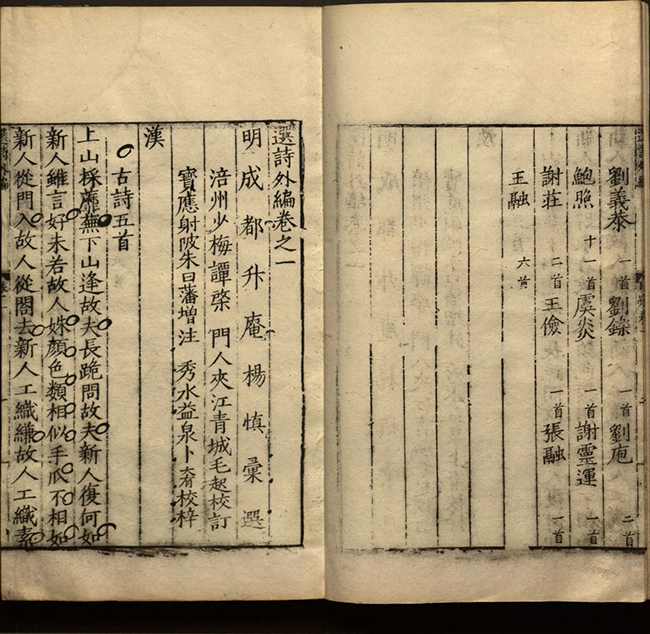 劉義恭 一首 劉鑠 一首 劉庖 二首
鮑照 十一首 虞炎 一首 謝靈運 一首
謝莊 二首 王儉 一首 張融 一首
王融 六首
選詩外編卷之一
明成都升庵楊慎彙選
涪州少梅譚棨 門人夾江青城毛起校訂
寶應射陂朱曰藩增注 秀水益泉卜大有校梓
漢
古詩五首
上山採蘼蕪下山逢故夫長跪問故夫新人復何如
新人雖言好未若故人姝顏色類相似手爪不相如
新人從門入故人從閤去新人工織縑故人工織素